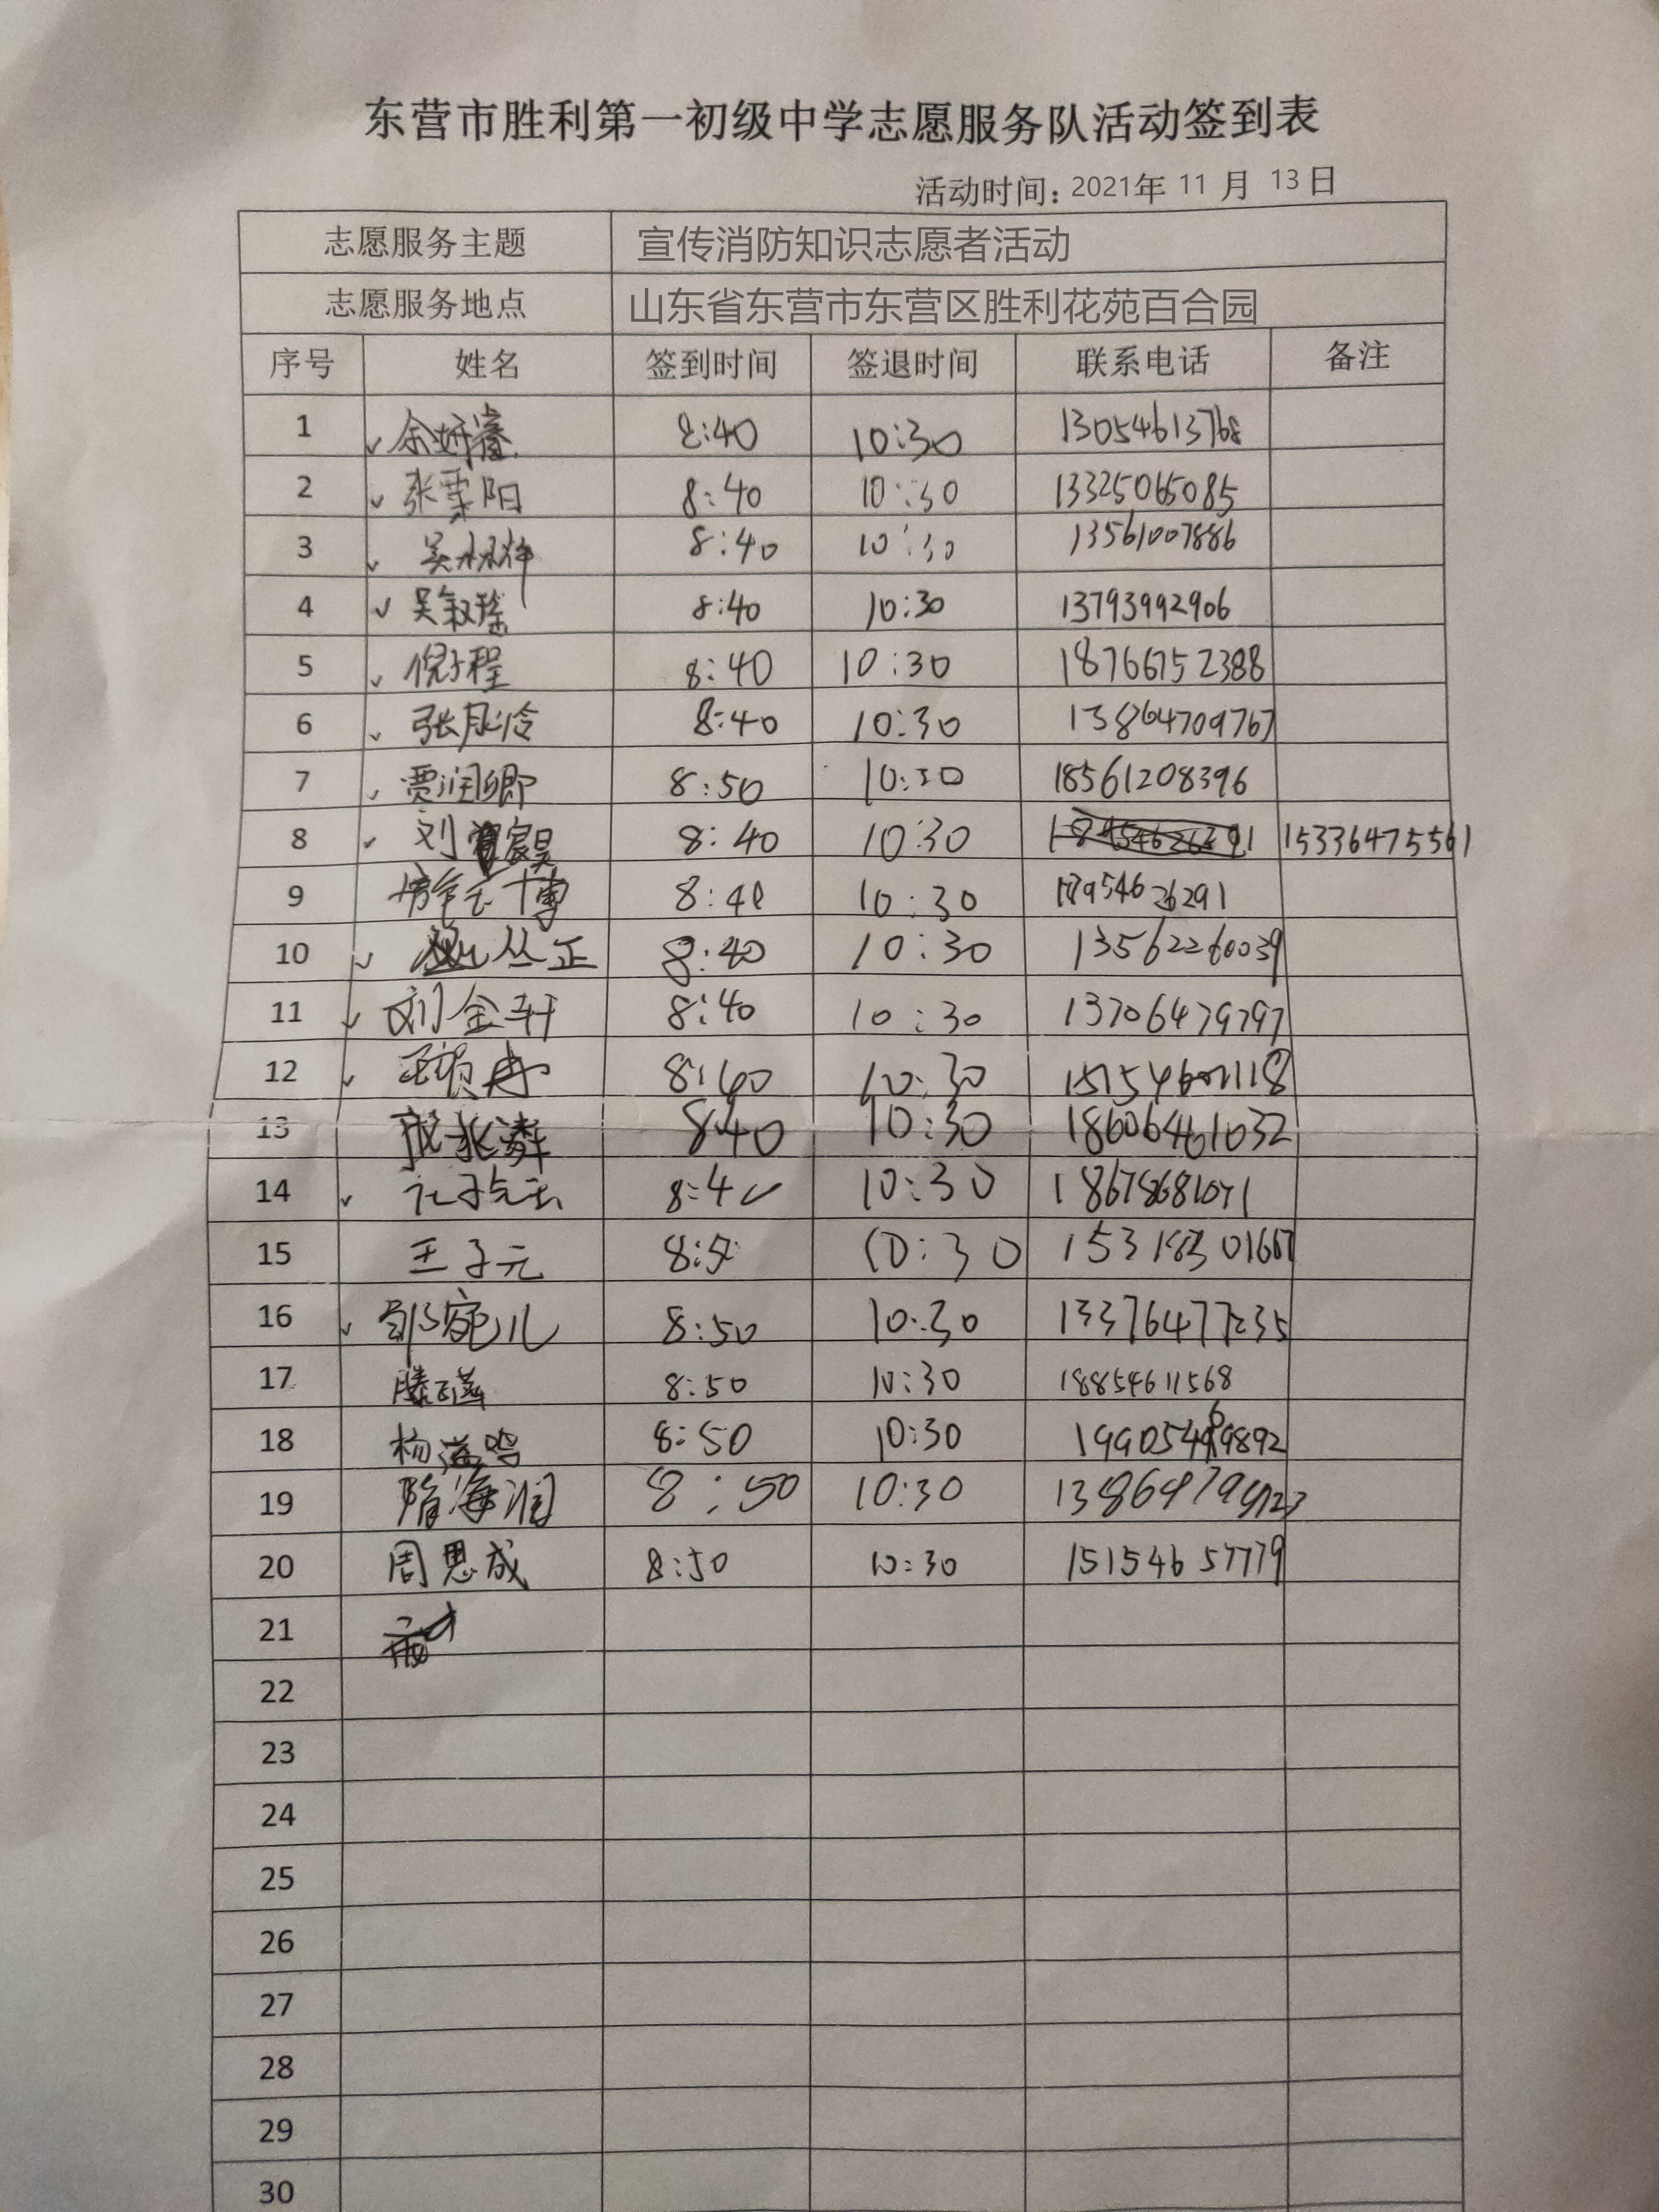 东营市胜利第一初级中学志愿服务队活动签到表
活动时间：2021年 11 月 13 日
志愿服务主题 宣传消防知识志愿者活动
志愿服务地点 山东省东营市东营区胜利花苑百合园
序号 姓名 签到时间 签退时间 联系电话 备注
1 余妍睿 8:40 10:30 13054613768
2 张栗阳 8:40 10:30 13325065085
3 8:40 10:30 13561007886
4 吴叙瑶 8:40 10:30 13793992906
5 倪子程 8:40 10:30 18766752388
6 张月泠 8:40 10:30 13864709767
7 贾润卿 8:50 10:30 18561208396
8 刘宸昊 8:40 10:30 15336475561
9 8:40 10:30 18954626291
10 丛正 8:40 10:30 13562260039
11 刘金轩 8:40 10:30 13706479797
12 8:40 10:30
13 8:40 10:30 18606461032
14 8:40 10:30 18678681071
15 王子元 10:30
16 邹宛儿 8:50 10:30 13376477235
17 8:50 10:30 18854611568
18 8:50 10:30
19 隋海润 8:50 10:30
20 周思成 8:50 10:30 15154657779
21
22
23
24
25
26
27
28
29
30